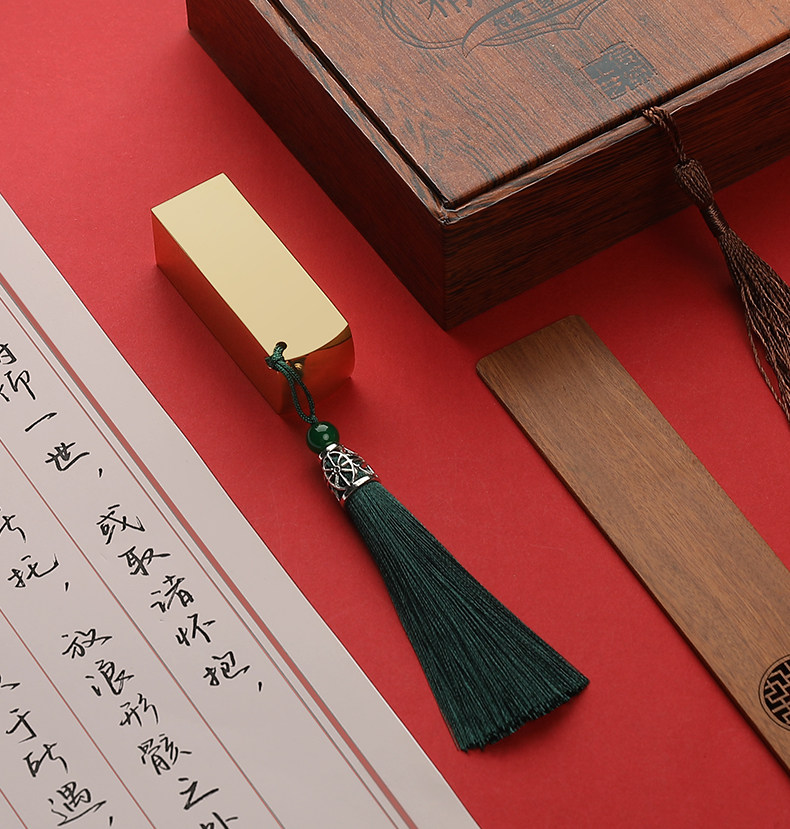 仰一世，或取诸怀抱，
所托，放浪形骸之
于所遇，